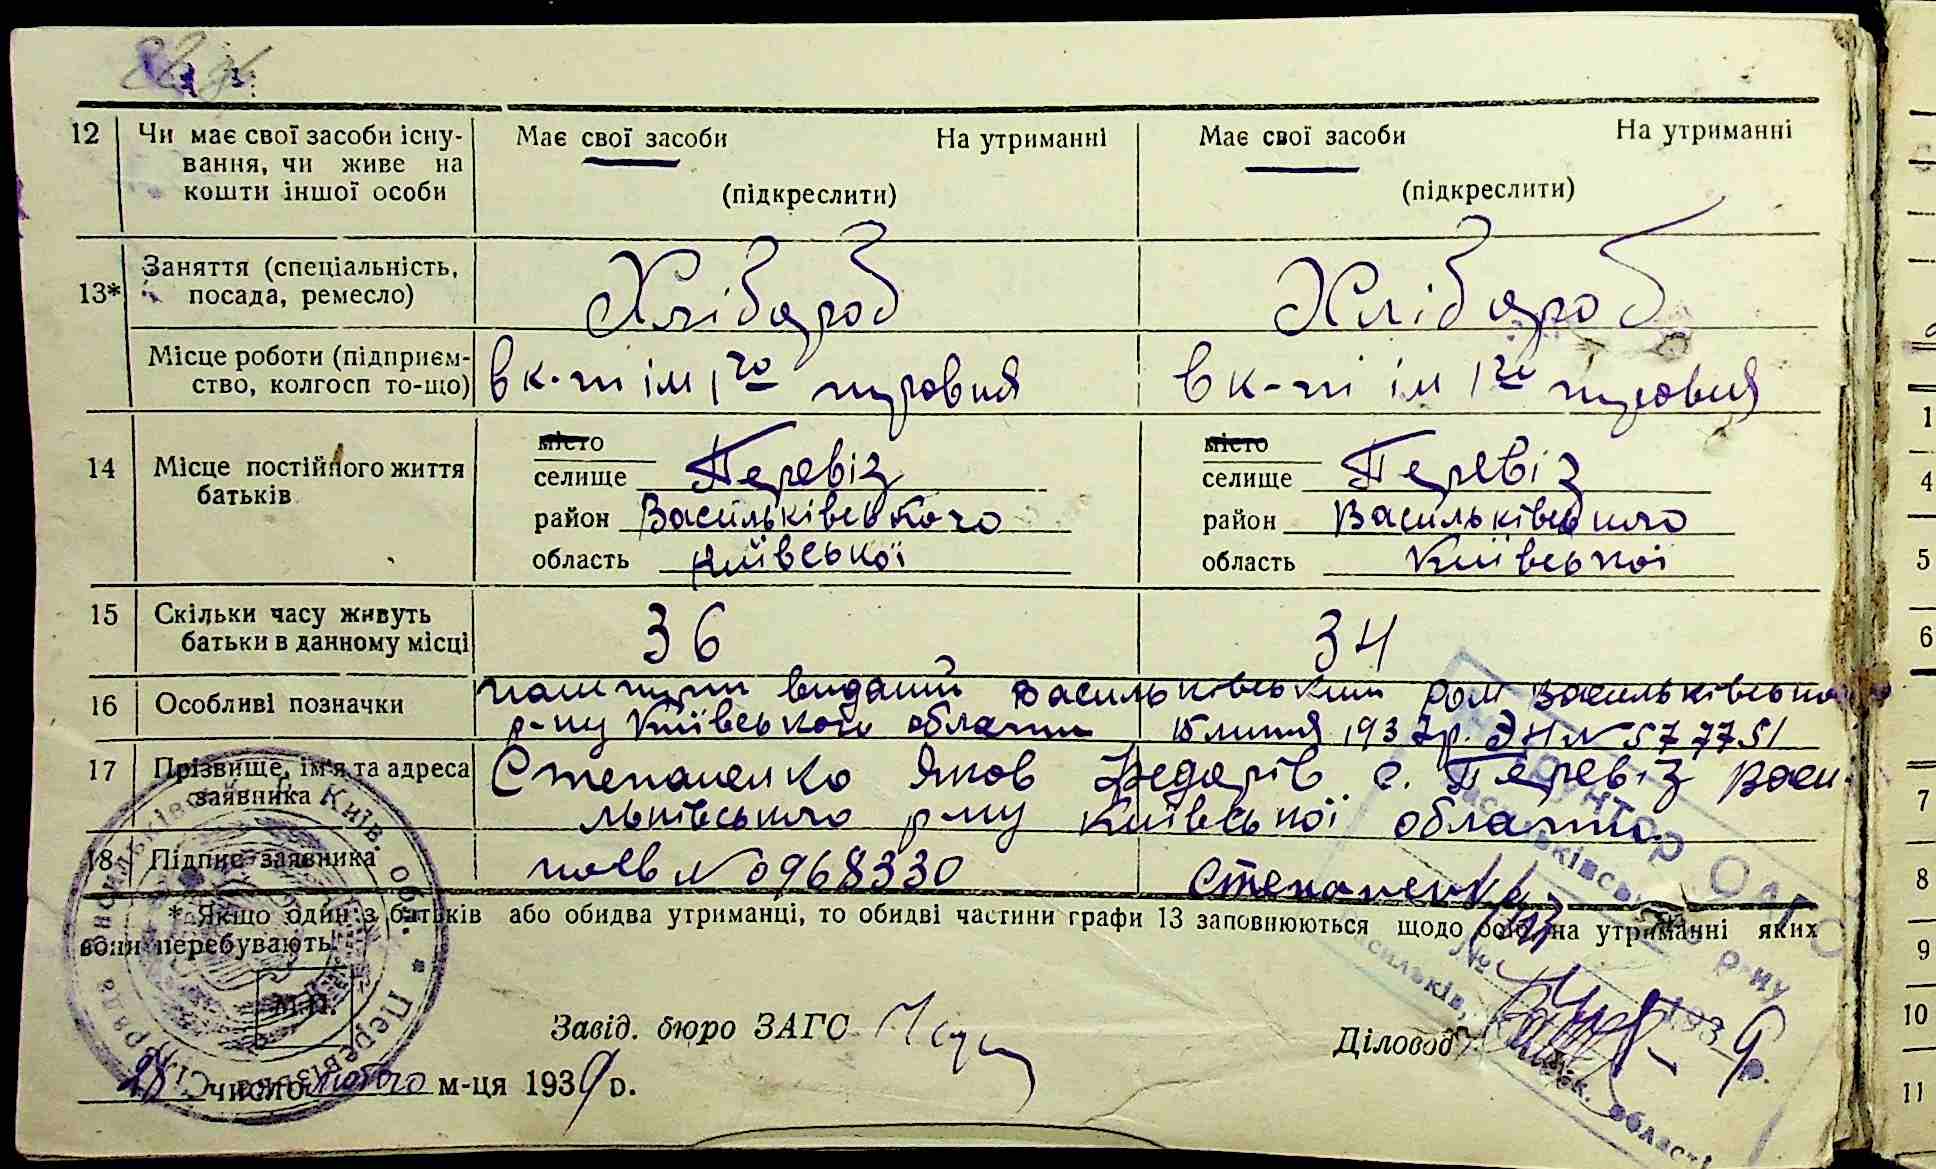 12 Чи має свої засоби існу- Має свої засоби На утриманні Має свої засоби На утриманні
вання, чи живе на
кошти іншої особи (підкреслити) (підкреслити)
13* Заняття (спеціальність, Хлібороб Хлібороб
посада, ремесло)
Місце роботи (підприєм- в к-пі ім 1го травня в к-пі ім 1го травня
ство, колгосп то-що)
14 Місце постійного життя місто місто
батьків селище Перевіз селище Перевіз
район Васильківського район Васильківського
область Київської область Київської
15 Скільки часу живуть 36 34
батьки в данному місці
16 Особливі позначки виданий Васильківським Васильківського
р-ну Київської області 15 липня 1937р. № 577751
17 Прізвище, ім'я та адреса Степаненко Яков с. Перевіз Васи
заявника льківського р-ну Київської області
18 Підпис заявника № 0968330 Степаненко
* Якщо один з батьків або обидва утриманці, то обидві частини графи 13 заповнюються щодо осіб, на утриманні яких
вони перебувають.
М.П.
Завід. бюро ЗАГС Діловод
28 число лютого м-ця 1939 р.
Київ. обл. * Перевізька
Васильківського р-ну
№ 1939 р.
м. Васильків, Київськ. області
1
4
5
6
7
8
9
10
11